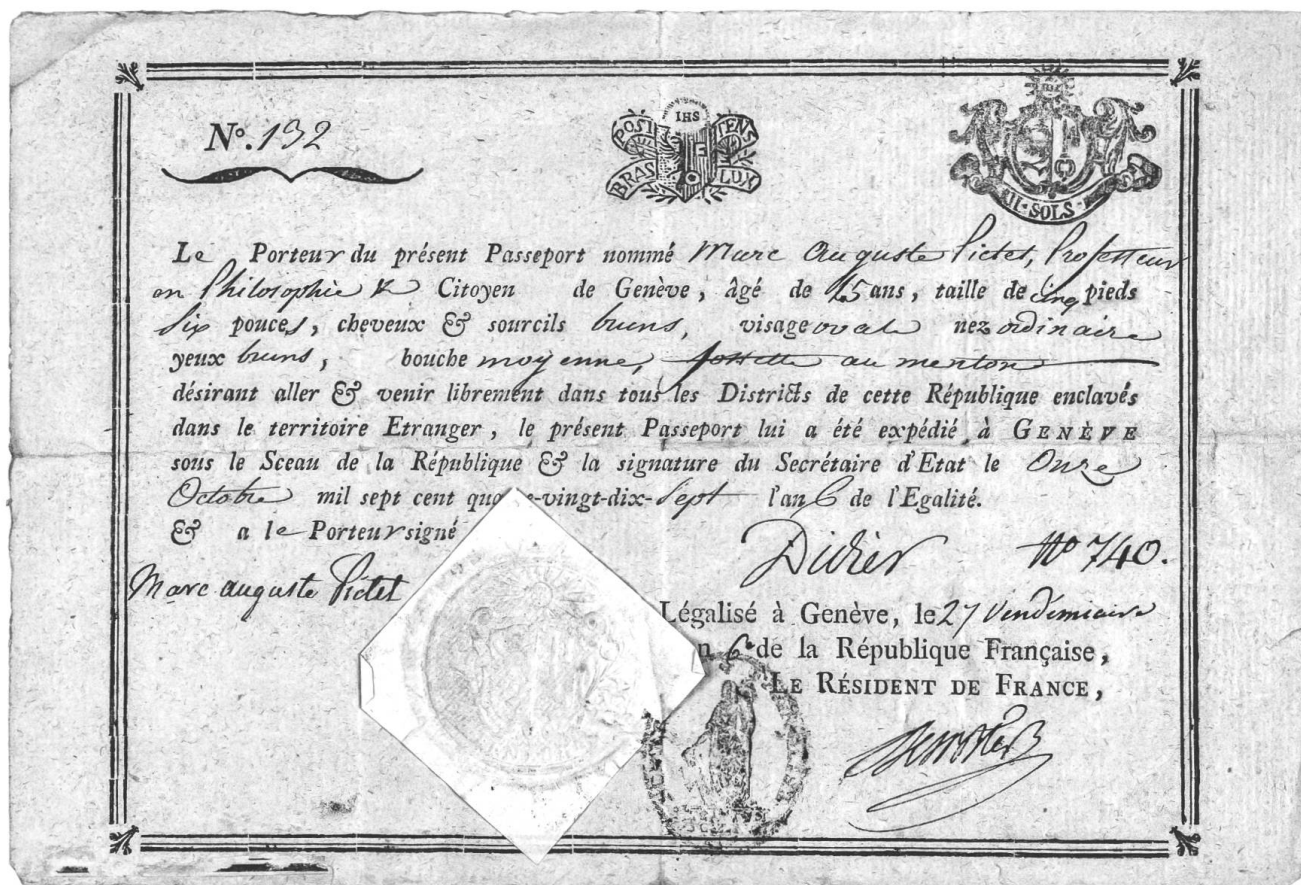 N.º 192
IHS
POST TENEBRAS LUX
II·SOLS
Le Porteur du présent Passeport nommé Marc Auguste Pictet, Professeur
en Philosophie & Citoyen de Genève, âgé de 45 ans, taille de cinq pieds
six pouces, cheveux & sourcils bruns, visage ovale nez ordinaire
yeux bruns, bouche moyenne, fossette au menton
désirant aller & venir librement dans tous les Districts de cette République enclavés
dans le territoire Etranger, le présent Passeport lui a été expédié à GENÈVE
sous le Sceau de la République & la signature du Secrétaire d'Etat le Onze
Octobre mil sept cent qua e-vingt-dix-sept l'an 6 de l'Egalité.
& a le Porteur signé
Didier Nº 740.
Marc auguste Pictet
Légalisé à Genève, le 27 Vendémiaire
n 6e de la République Française,
LE RÉSIDENT DE FRANCE,